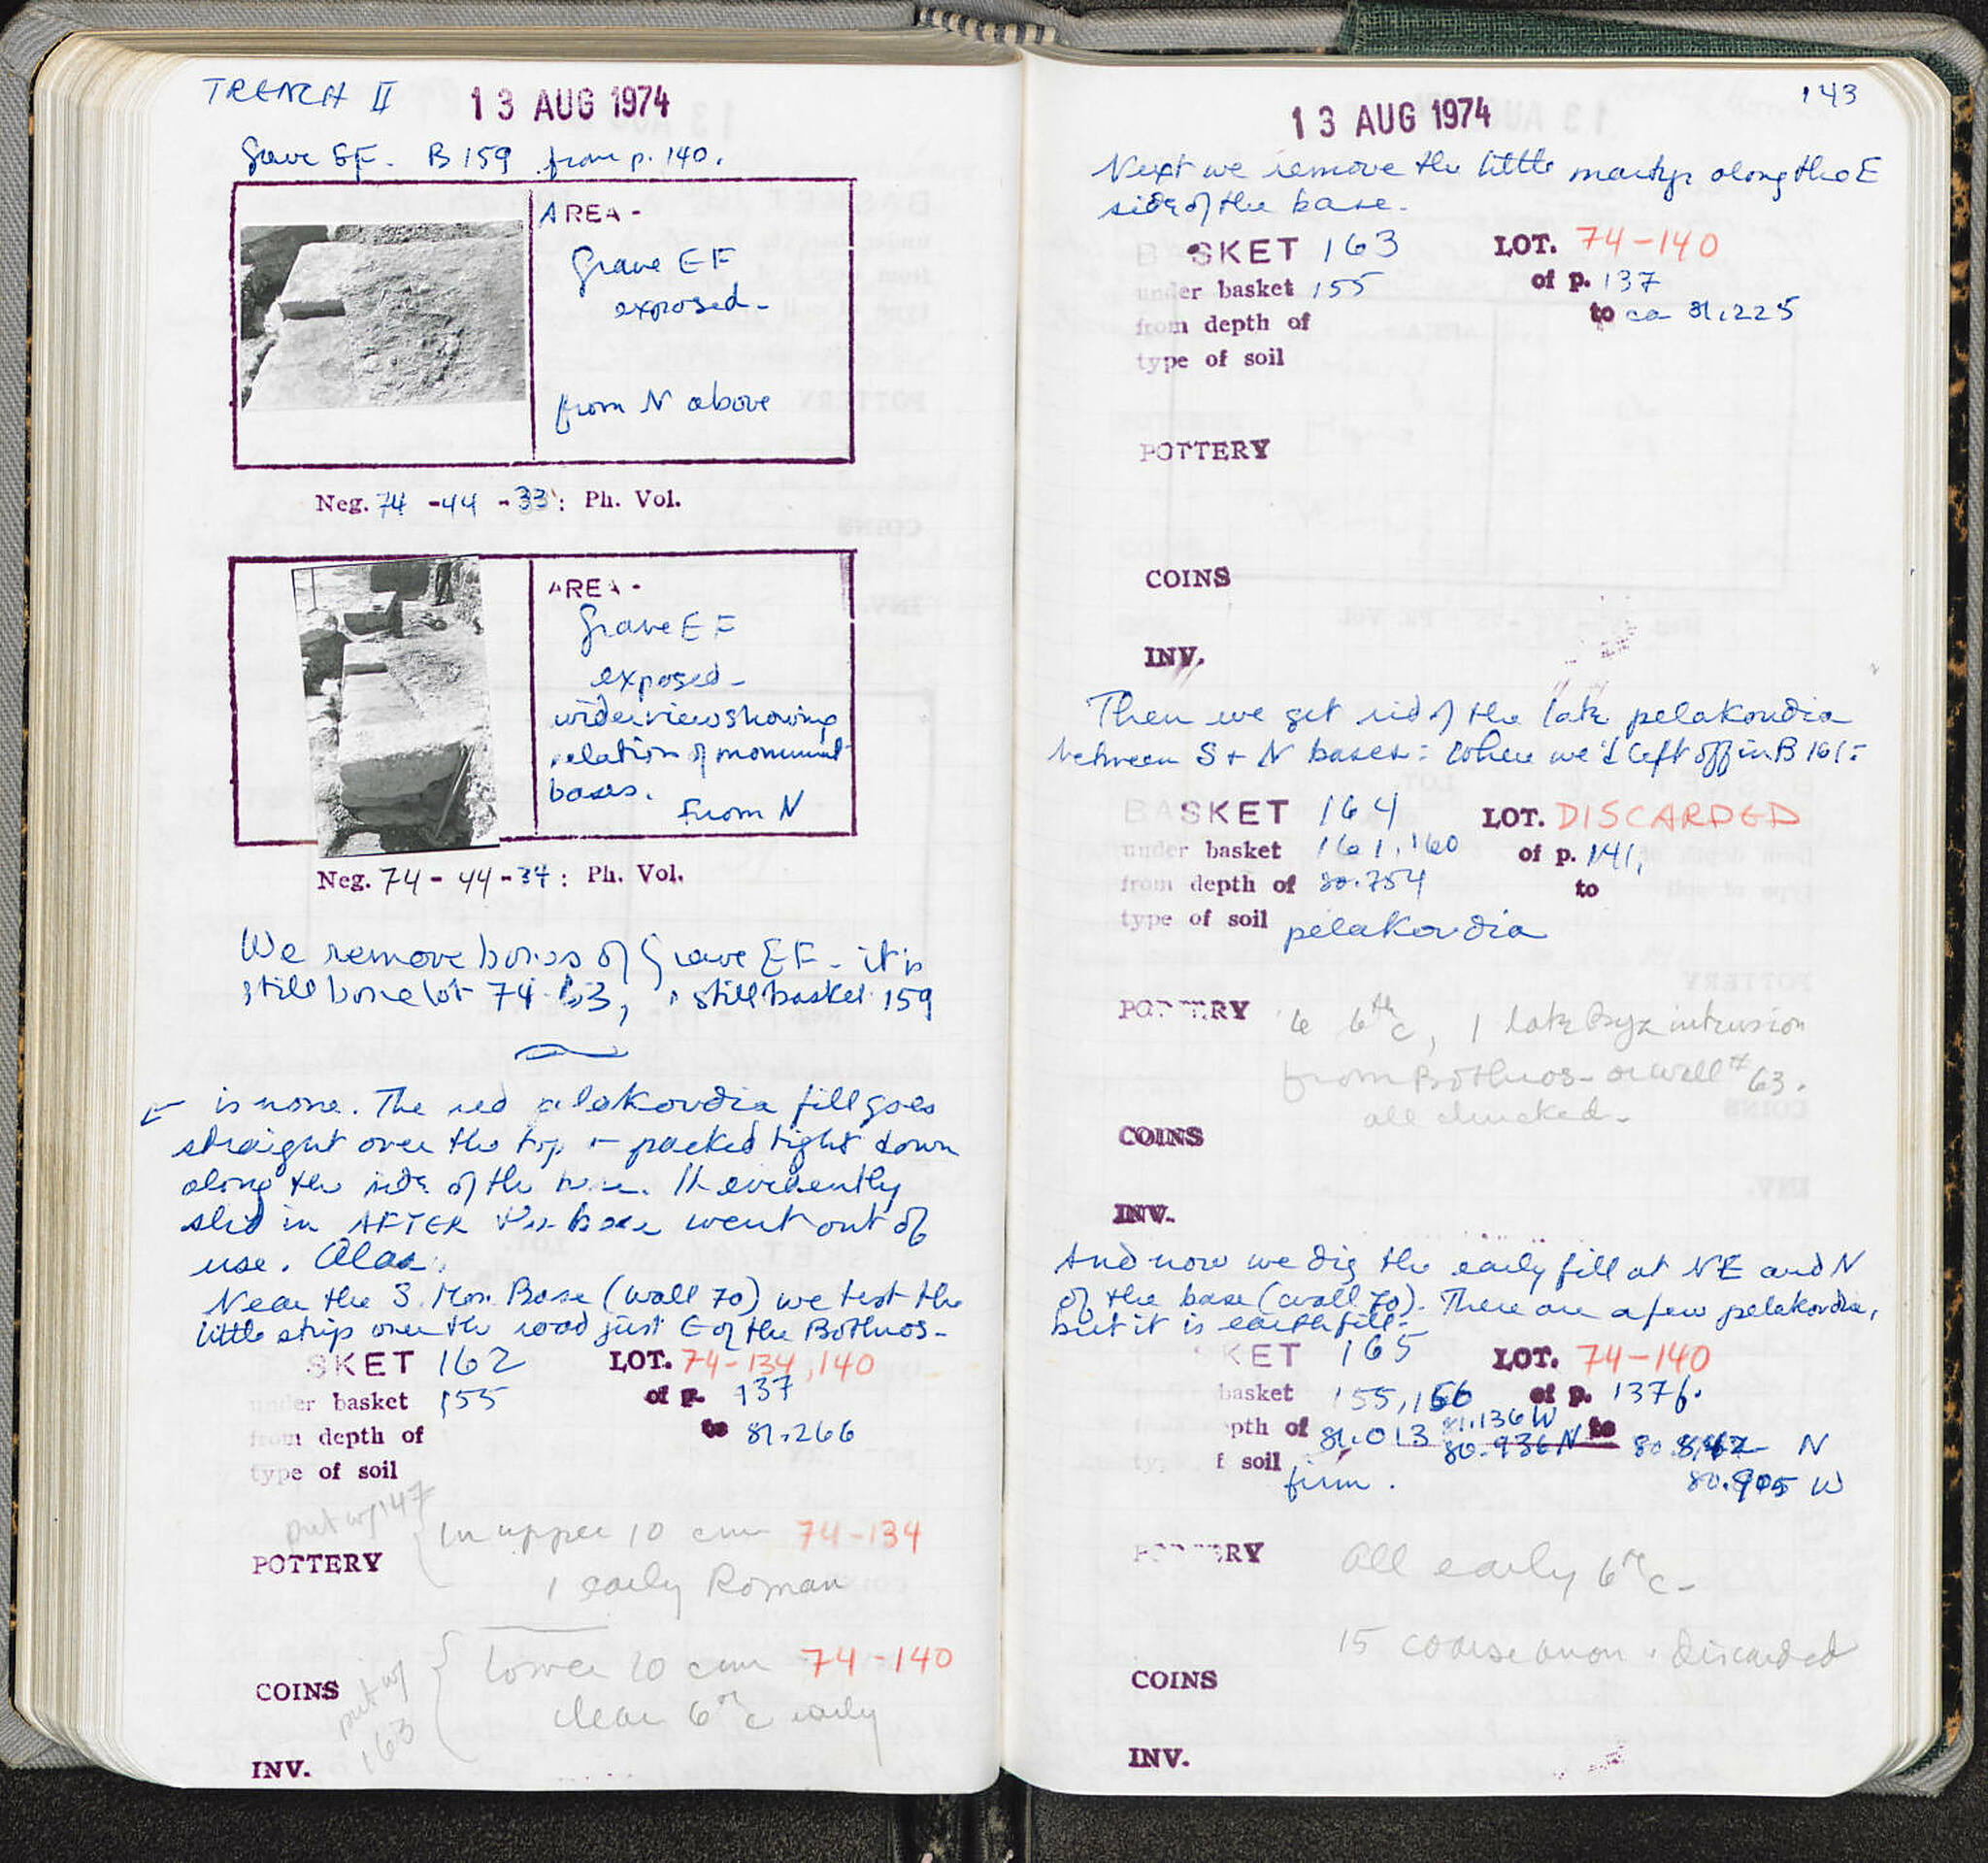 TRENCH II
13 AUG 1974
Grave EF. B 159 from p. 140.
AREA -
Grave EF
exposed -
from N above
Neg. 74 - 44 - 33 : Ph. Vol.
AREA -
Grave EF
exposed -
wider view showing
relation of monument
bases.
From N
Neg. 74 - 44 - 34 : Ph. Vol.
We remove bones of Grave EF - it is
still bone lot 74-63, still basket 159
is none. The red pelakoudia fill goes
straight over the top + packed tight down
along the side of the base. It evidently
slid in AFTER the base went out of
use. Alas.
Near the S. Mon. Base (wall 70) we test the
little strip over the road just E of the Bothros -
SKET 162 LOT. 74-134, 140
under basket 155 of p. 137
from depth of to 81.266
type of soil
put w/ 147
In upper 10 cm 74-134
POTTERY
1 early Roman
Lower 10 cm 74-140
COINS
put w/ 163
clear 6th c early
INV.
143
13 AUG 1974
Next we remove the little martyr along the E
side of the base.
BASKET 163 LOT. 74-140
under basket 155 of p. 137
from depth of to ca 81.225
type of soil
POTTERY
COINS
INV.
Then we get rid of the late pelakoudia
between S + N bases: where we'd left off in B 161:
BASKET 164 LOT. DISCARDED
under basket 161, 160 of p. 141,
from depth of 80.754 to
type of soil pelakoudia
POTTERY 6 6th c, 1 late Byz intrusion
from Bothros - or wall # 63.
all chucked -
COINS
INV.
And now we dig the early fill at NE and N
of the base (wall 70). There are a few pelakoudia,
but it is earth fill:
KET 165 LOT. 74-140
basket 155, 156 of p. 137 f.
pth of 81.013 81.136 W 80.936 N to 80.842 N
f soil firm. 80.905 W
POTTERY All early 6th c -
15 coarse anon. discarded
COINS
INV.